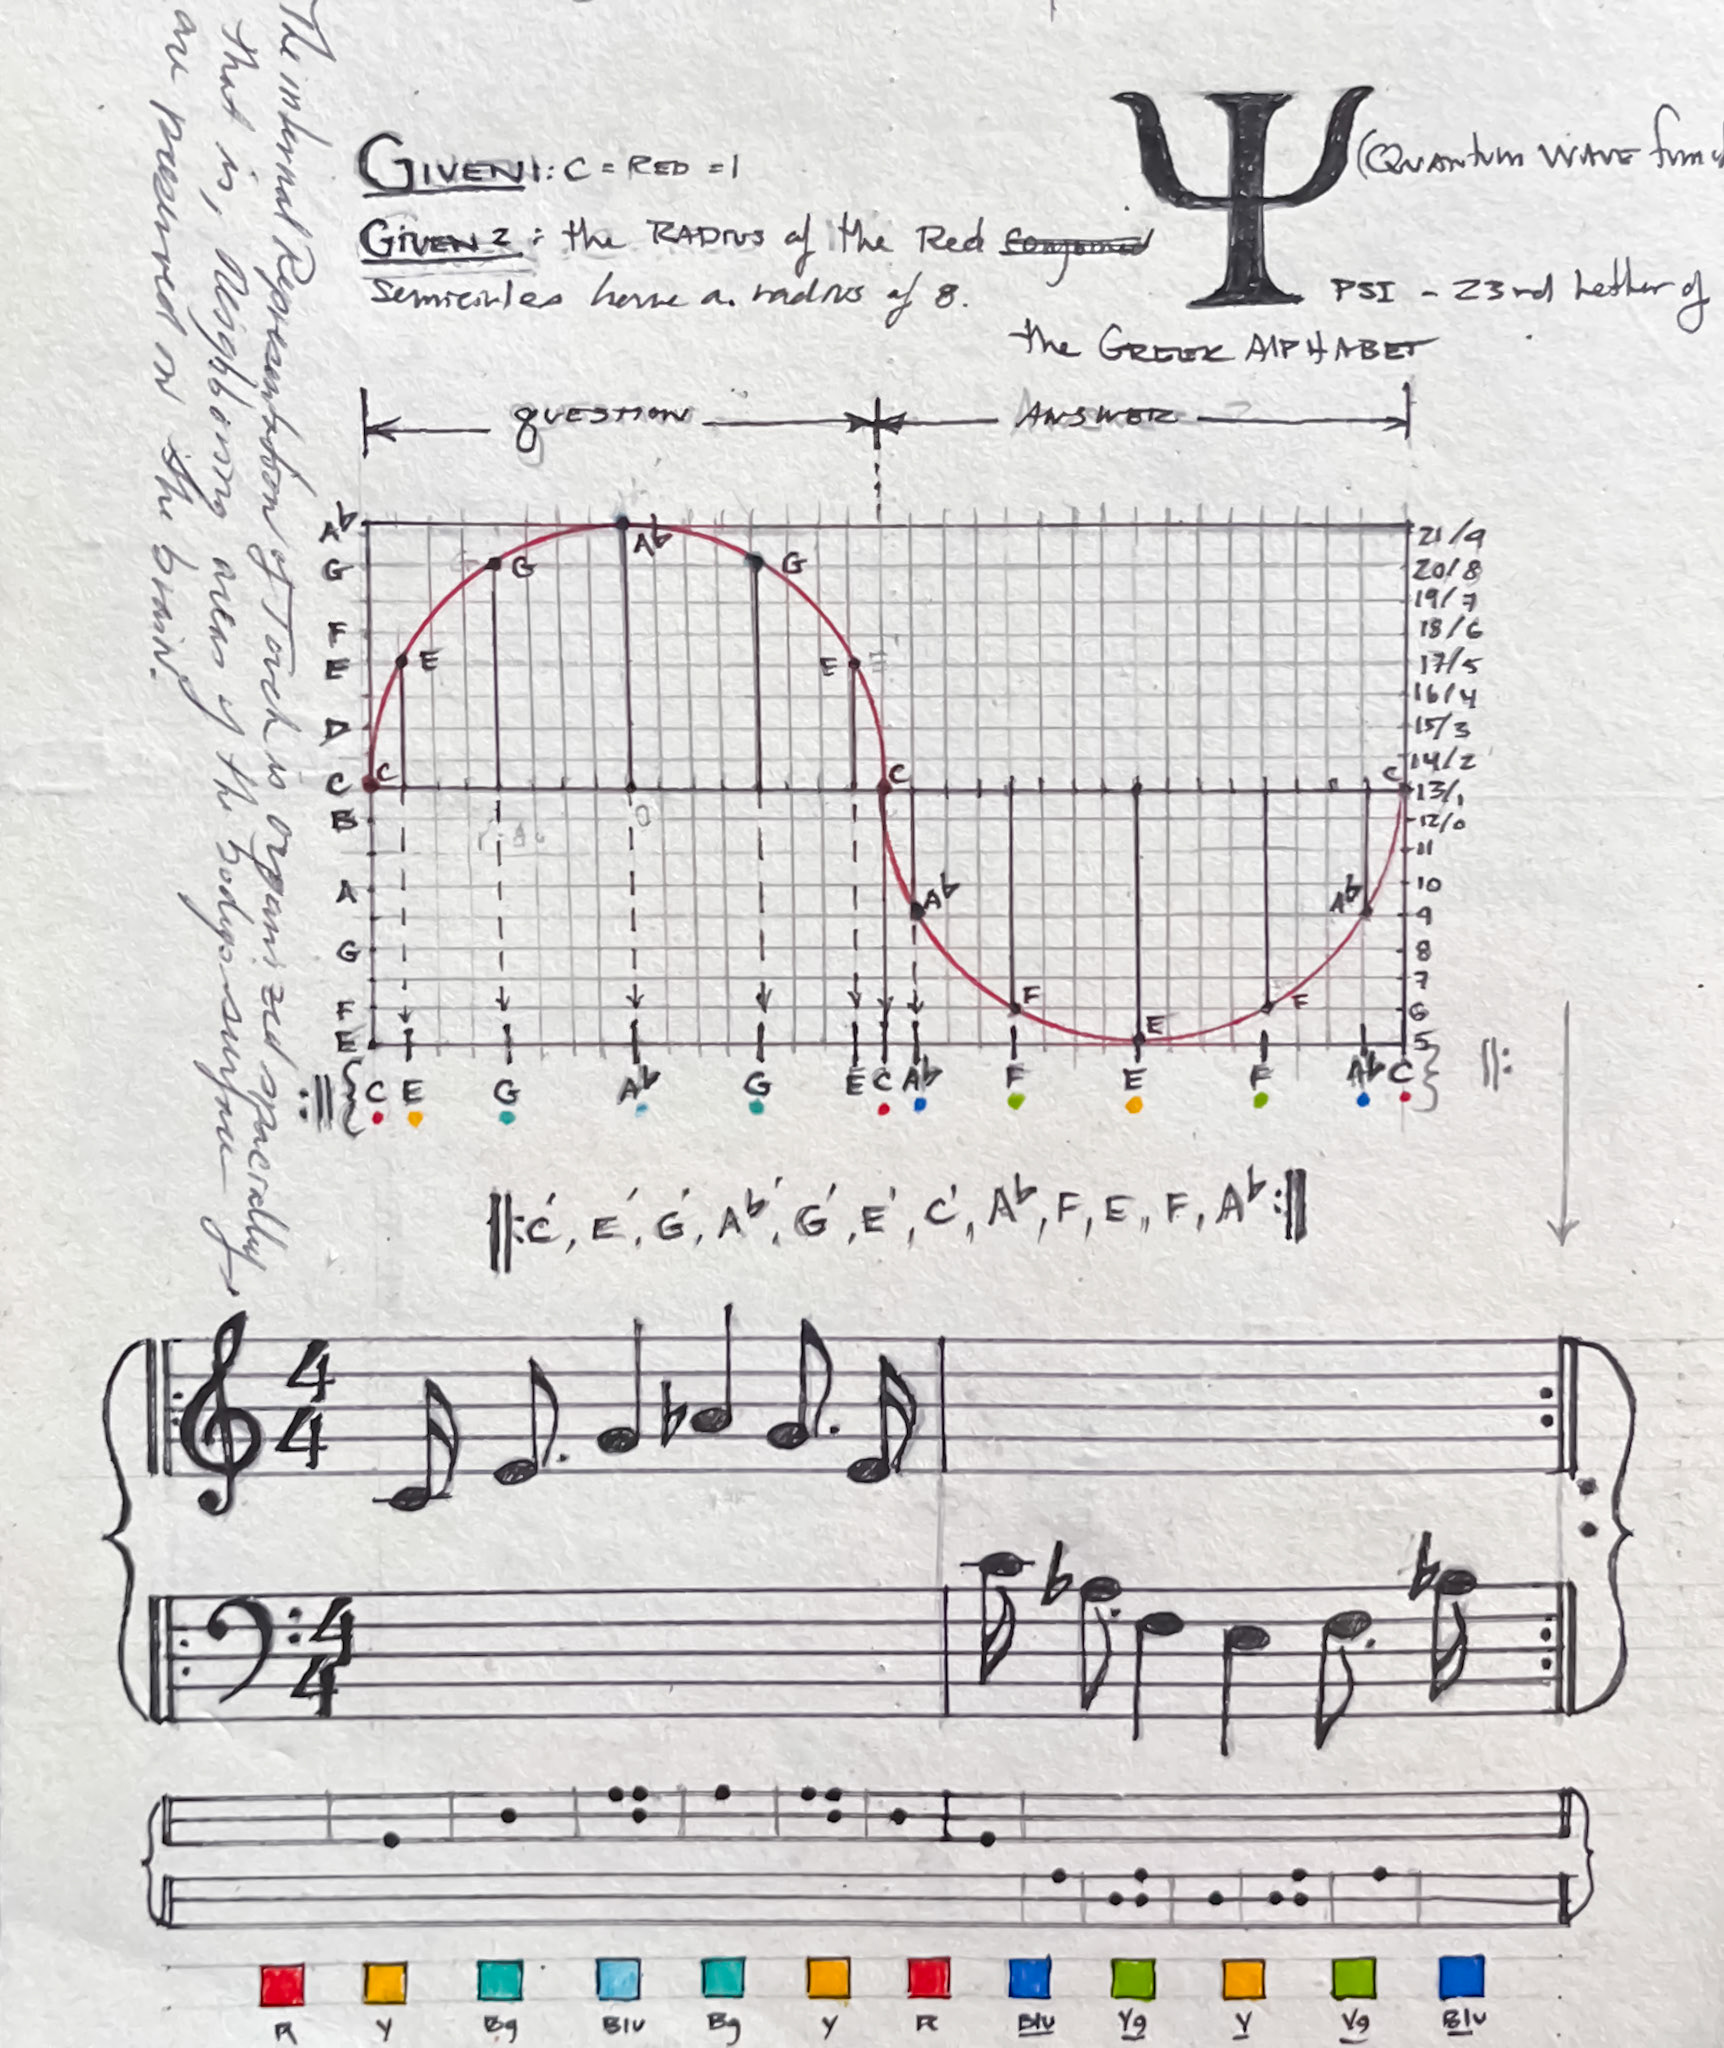 The internal Representation of Touch is organized spacially
that is, Neighboring areas of the body surface
are preserved in the brain.
GIVEN 1: C = RED = 1
GIVEN 2: the RADIUS of the Red
semicircles have a radius of 8.
Ψ
(QUANTUM WAVE
PSI - 23rd Letter of
the GREEK ALPHABET
QUESTION ANSWER
A♭ A♭ 21/9
G G G 20/8
19/7
F 18/6
E E E 17/5
16/4
D 15/3
14/2
C C C C 13/1
B 0 12/0
11
A A♭ A♭ 10
9
G 8
7
F F F 6
E E 5
:‖ { C E G A♭ G E C A♭ F E F A♭ C } ‖:
‖: C', E', G', A♭', G', E', C', A♭, F, E, F, A♭ :‖
4
4
♭
4
4
♭ ♭
R Y Bg Blu Bg Y R Blu Yg Y Yg Blu